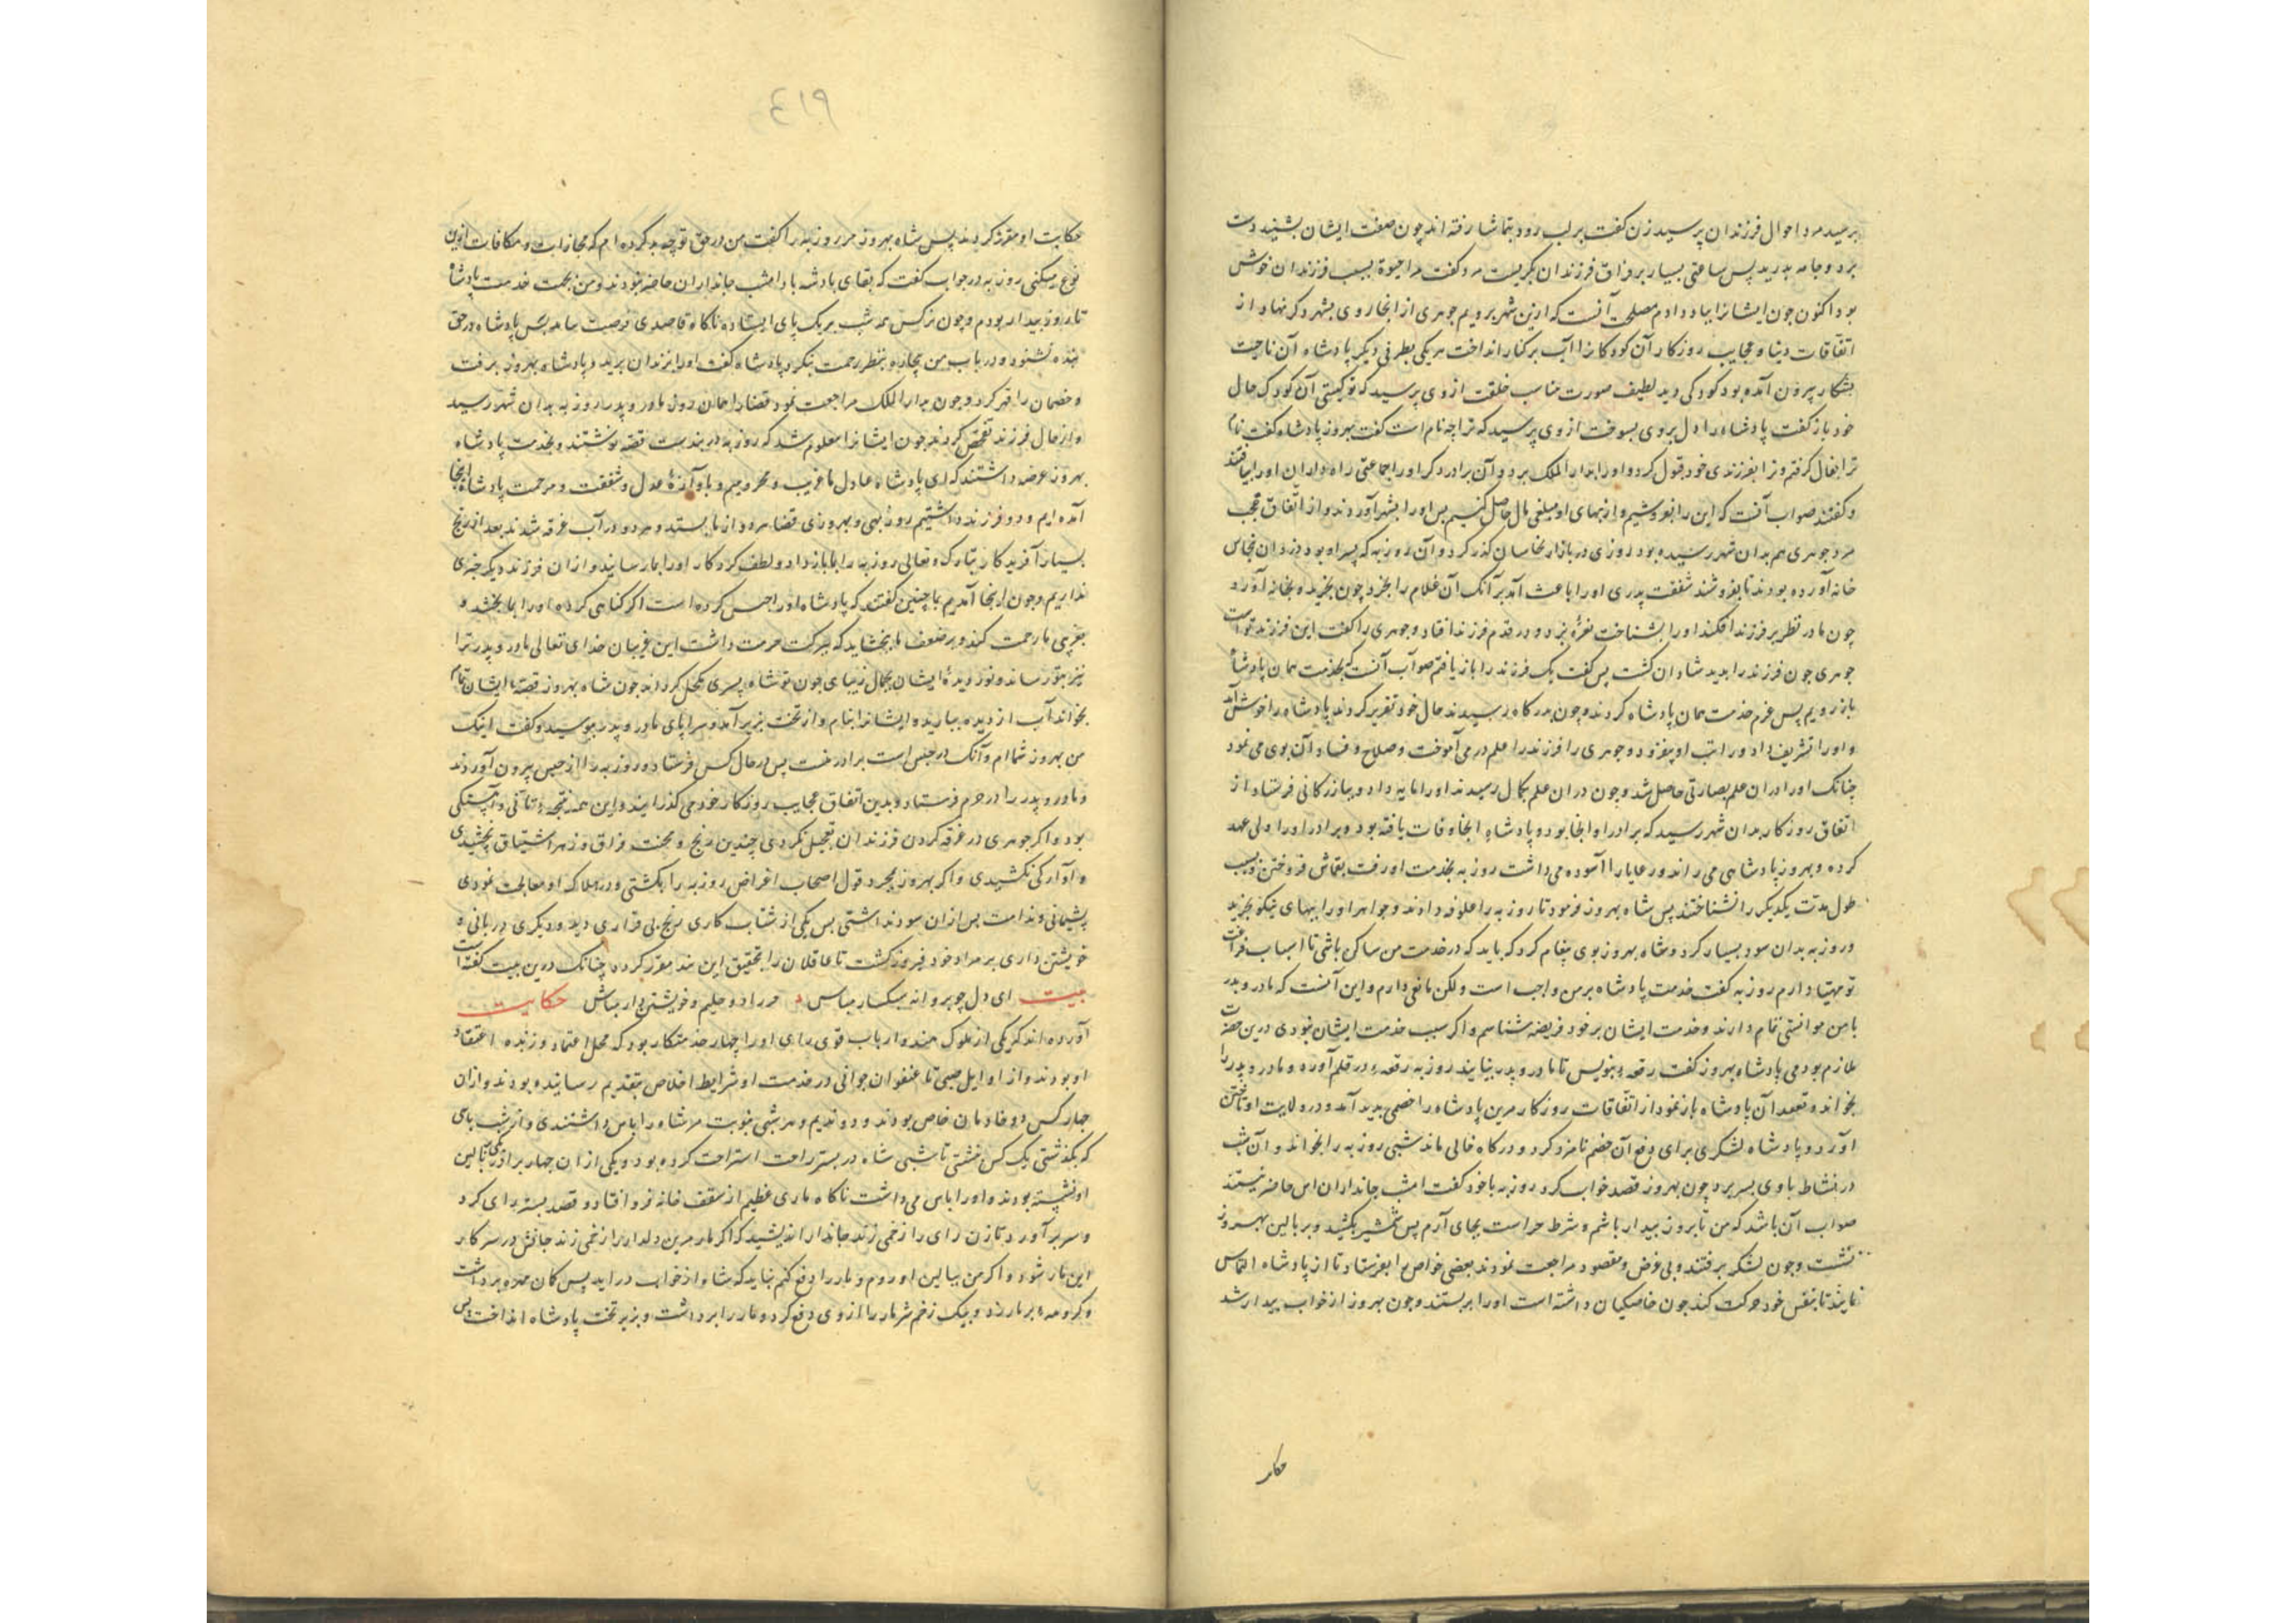 برسید مرد احوال فرزندان پرسید زن گفت بر لب رود بتماشا رفته اند چون صفت ایشان بشنید دست
برد و جامه بدرید پس ساعتی بسیار بر فراق فرزندان بگریست مرد گفت مرا حیوة بسبب فرزندان خوش
بود اکنون چون ایشانرا بباد دادم مصلحت آنست که ازین شهر برویم جوهری از انجا روی بشهر دگر نهاد و از
اتفاقات دنیا و عجایب روزکار آن کودکانرا آب بر کنار انداخت هر یکی بطرفی دیگر پادشاه آن ناحیت
بشکار بیرون آمده بود کودکی دید لطیف صورت مناسب خلقت از وی پرسید که تو کیستی آن کودک حال
خود باز گفت پادشاه را دل بر وی بسوخت از وی پرسید که ترا چه نام است گفت بهروز پادشاه گفت نام
ترا بفال گرفتم و ترا بفرزندی خود قبول کرد و او را بدار الملک برد و آن برادر دگر او را جماعتی راه داران او را بیافتند
و گفتند صواب آنست که این را بفروشیم و از بهای او مبلغی مال حاصل کنیم پس او را بشهر آوردند و از اتفاق عجب
مرد جوهری هم بدان شهر رسیده بود روزی در بازار نخاسان گذر کرد و آن روزبه که پسر او بود دزدان نخاس
خانه آورده بودند تا بفروشند شفقت پدری او را باعث آمد بر آنک آن غلام را بخرد چون بخرید و بخانه آورد
چون مادر نظر بر فرزند افکند او را بشناخت نعرهٔ بزد و در قدم فرزند افتاد و جوهری را گفت این فرزند تو است
جوهری چون فرزند را بدید شادان گشت پس گفت یک فرزند را باز یافتم صواب آنست که بخدمت همان پادشاه
باز رویم پس عزم خدمت همان پادشاه کردند و چون بدرکاه رسیدند حال خود تقریر کردند پادشاه را خوش آمد
و او را تشریف داد و راتب او بیفزود و جوهری را فرزند را علم در می آموخت و صلاح و فساد آن بوی می نمود
چنانک او را در ان علم بصارتی حاصل شد و چون در ان علم بکمال رسید او را مایه داد و ببازرکانی فرستاد از
اتفاق روزکار بدان شهر رسید که برادر او انجا بود و پادشاه انجا وفات یافته بود و برادر او را ولی عهد
کرده و بهروز پادشاهی می راند و رعایا را آسوده می داشت روزبه بخدمت او رفت بقماش فروختن و بسبب
طول مدت یکدیگر را نشناختند پس شاه بهروز فرمود تا روزبه را علوفه دادند و جواهر او را ببهای نیکو بخرید
و روزبه بدان سود بسیار کرد و شاه بهروز بوی پیغام کرد که باید که در خدمت من ساکن باشی تا اسباب فراغت
تو مهیا دارم روزبه گفت خدمت پادشاه بر من واجب است ولکن مانعی دارم و این آنست که مادر و پدر
با من موانستی تمام دارند و خدمت ایشان بر خود فریضه شناسم و اگر سبب خدمت ایشان نبودی درین حضرت
ملازم بودمی پادشاه بهروز گفت رقعه بنویس تا مادر و پدر بیایند روزبه رقعه در قلم آورد و مادر و پدر را
بخواند و تعهد آن پادشاه باز نمود از اتفاقات روزکار مرین پادشاه را خصمی پدید آمد و در ولایت او تاختن
آورد و پادشاه لشکری برای دفع آن خصم نامزد کرد و درکاه خالی ماند شبی روزبه را بخواند و آن شب
در نشاط با وی بسر برد چون بهروز قصد خواب کرد روزبه با خود گفت امشب جانداران این حاضر نیستند
صواب آن باشد که من تا بروز بیدار باشم و شرط حراست بجای آرم پس شمشیر بکشید و بر بالین بهروز
بنشست و چون لشکر برفتند و بی غرض و مقصود مراجعت نمودند بعضی خواص را بفرستاد تا از پادشاه التماس
نمایند تا بنفس خود حرکت کند چون خاصکیان داشته است او را بربستند و چون بهروز از خواب بیدار شد
حکا
٤١٩
حکایت او مقرر کردند پس شاه بهروز مر روزبه را گفت من در حق تو چه بد کرده ام که مجازات و مکافات ازین
نوع میکنی روزبه در جواب گفت که بقای پادشه باد امشب جانداران حاضر نبودند و من بجهت خدمت پادشاه
تا روز بیدار بودم و چون نرکس همه شب بر یک پای ایستاده ناکاه قاصدی فرصت پس پادشاه در حق
بنده نشنود و در باب من بیچاره بنظر رحمت ننکرد پادشاه گفت او را بزندان برید و پادشاه بهروز برفت
و خصمان را قهر کرد و چون بدار الملک مراجعت نمود قضا را همان روز مادر و پدر روزبه بدان شهر رسید
و از حال فرزند تفحص کردند چون ایشانرا معلوم شد که روزبه در بند ست قصه نوشتند و بخدمت پادشاه
بهروز عرضه داشتند که ای پادشاه عادل ما غریب و محرومیم و بآوازهٔ عدل و شفقت و مرحمت پادشاه اینجا
آمده ایم و دو فرزند داشتیم روزبهی و بهروزی قضا هر دو از ما بستد و هر دو در آب غرقه شدند بعد از رنج
بسیار آفریدکار تبارک و تعالی روزبه را با ما باز داد و لطف کردکار او را بما رسانید و از ان فرزند دیکر خبری
نداریم و چون اینجا آمدیم با ما چنین گفتند که پادشاه او را حبس کرده است اگر کناهی کرده او را بما بخشد و
بغریبی ما رحمت کند و بر ضعف ما بخشاید که ببرکت مرحمت داشت این غریبان خدای تعالی مادر و پدر ترا
نیز بتو رساند و نور دیدهٔ ایشان بجمال زیبای چون تو شاه پسری مکحل کرداند چون شاه بهروز قصهٔ ایشان تمام
بخواند آب از دیده ببارید و ایشانرا بخواند و از تخت بزیر آمد و سراپای مادر و پدر ببوسید و گفت اینک
من بهروز شما ام و آنک در حبس است برادر منست پس در حال کس فرستاد و روزبه را از حبس بیرون آوردند
و مادر و پدر را در حرم فرستاد و بدین اتفاق عجایب روزکار خود می گذرانیدند و این همه نتیجهٔ تأنی و آهستگی
بود و اگر جوهری در غرقه کردن فرزندان تعجیل نکردی چندین رنج و محنت فراق و زهر اشتیاق نچشیدی
و آوارگی نکشیدی و اگر بهروز بمجرد قول اصحاب اغراض روزبه را بکشتی و در هلاک او معالجت نمودی
پشیمانی و ندامت پس از ان سود نداشتی پس یکی از شتاب کاری رنج بی قراری دید و دیگری در بانی و
خویشتن داری بر مراد خود فیروز گشت تا عاقلان را تحقیق این پند مقرر گردد چنانک درین بیت گفته است
بیت ای دل چو پروانه سبکسار مباش حرراد و حلیم و خویشتن دار مباش حکایت
آورده اند که یکی از ملوک هند و ارباب قوی رای او را چهار خدمتکار بود که محل اعتماد و زنده اعتقاد
او بودند و از اوایل صبی تا عنفوان جوانی در خدمت او شرایط اخلاص بتقدیم رسانیده بودند و ازان
چهار کس دو خادمان خاص بودند و دو ندیم و هر شبی بنوبت مر شاه را پاس داشتندی و از شب پاسی
که بگذشتی یک کس خفتی تا شبی شاه در بستر راحت استراحت کرده بود و یکی از ان چهار برادر یکی بالین
او نشسته بودند و او را پاس می داشت ناکاه ماری عظیم از سقف خانه فرو افتاد و قصد بستر رای کرد
و سر برآورد تا زن رای را زخمی زند جاندار اندیشید که اگر مار مرین دلدار را زخمی زند جانش در سر کار
این مار شود و اگر من ببالین او روم و مار را دفع کنم نباید که شاه از خواب در اید پس کمان مهره برداشت
و کرومهه بر مار زد و بیک زخم شر مار را از وی دفع کرد و مار را برداشت و بزیر تخت پادشاه انداخت پس